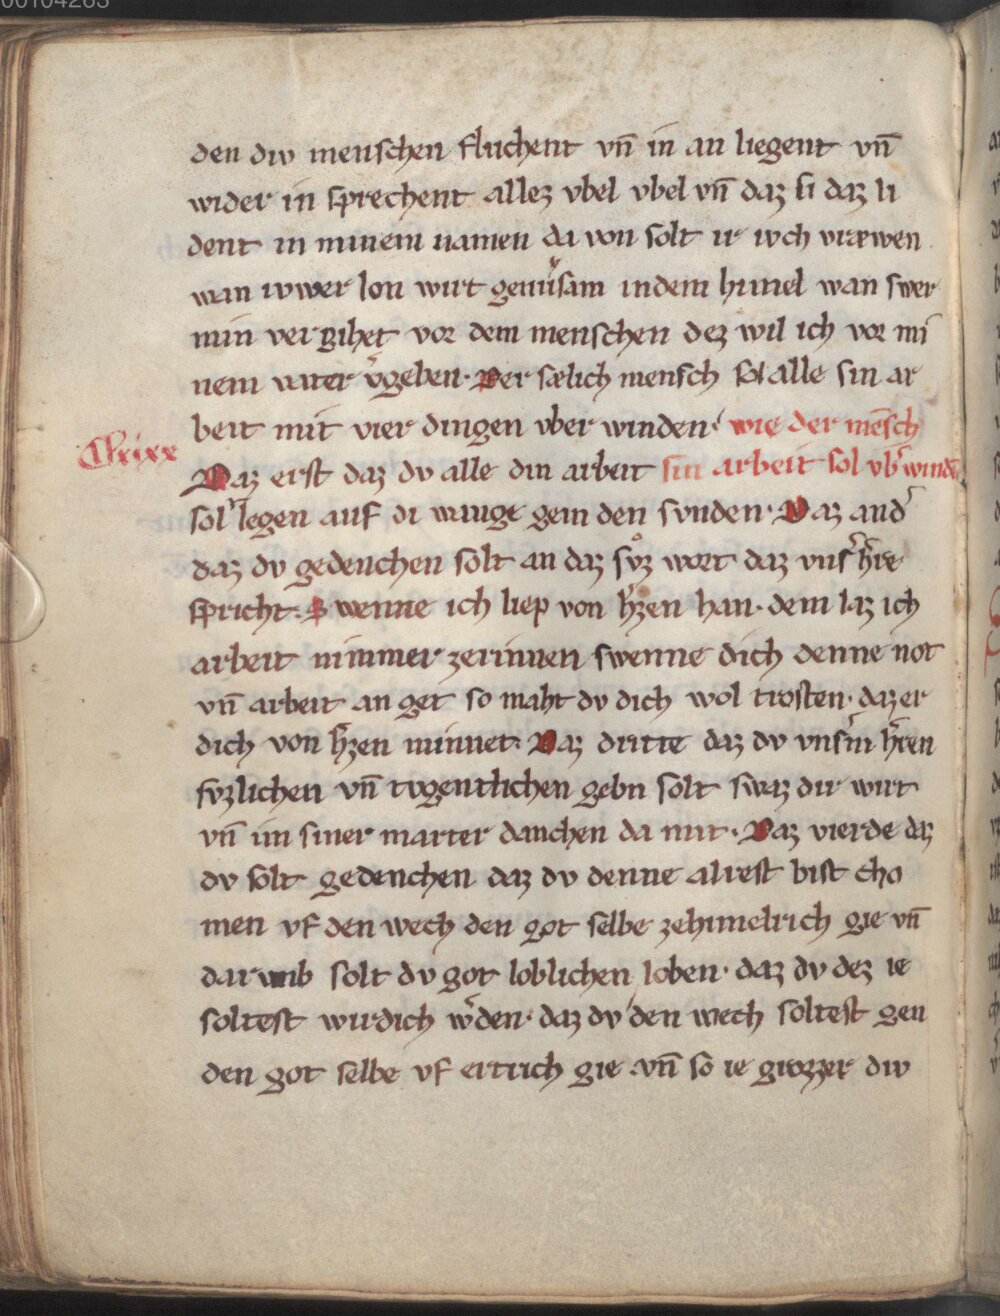 00104265
den div menschen fluchent vn̄ in an liegent vn̄
wider in sprechent allez vbel vbel vn̄ daz si daz li
dent in minem namen da von solt ir ivch vræwen
wan ivwer lon wirt genuͤsam in dem himel wan swer
min vergihet vor dem menschen dez wil ich vor mi
nem vater v̾geben. Der sælich mensch sol alle sin ar
beit mit vier dingen vber winden. wie der mēsch
Daz erst daz dv alle din arbeit sin arbeit sol vb̾ windē
solt legen auf di wauge gein den svnden. Daz and̾
daz dv gedenchen solt an daz svͦz wort daz vns̾ h̾re
spricht. Swenne ich liep von h̾zen han. dem laz ich
arbeit nimmer zerinnen swenne dich denne not
vn̄ arbeit an get so maht dv dich wol trosten. daz er
dich von h̾zen minnet. Daz dritte daz dv vns̾m h̾ren
svzlichen vn̄ tvgentlichen gebn solt swaz dir wirt
vn̄ im siner marter danchen da mit. Daz vierde daz
dv solt gedenchen daz dv denne alrest bist cho
men vf den wech den got selbe ze himelrich gie vn̄
dar vmb solt dv got loblichen loben. daz dv dez ie
soltest wirdich w̾den. daz dv den wech soltest gen
den got selbe vf ertrich gie. vn̄ so ie grozzer div